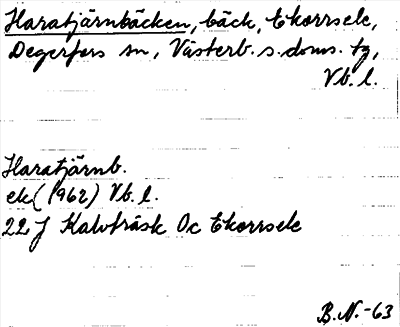 Haratjärnbäcken, bäck, Ekorrsele,
Degerfors sn, Västerb. s. doms. tg,
Vb. l.
Haratjärnb.
ek (1962) Vb. l.
22 J Kalvträsk Oc Ekorrsele
B.N.-63